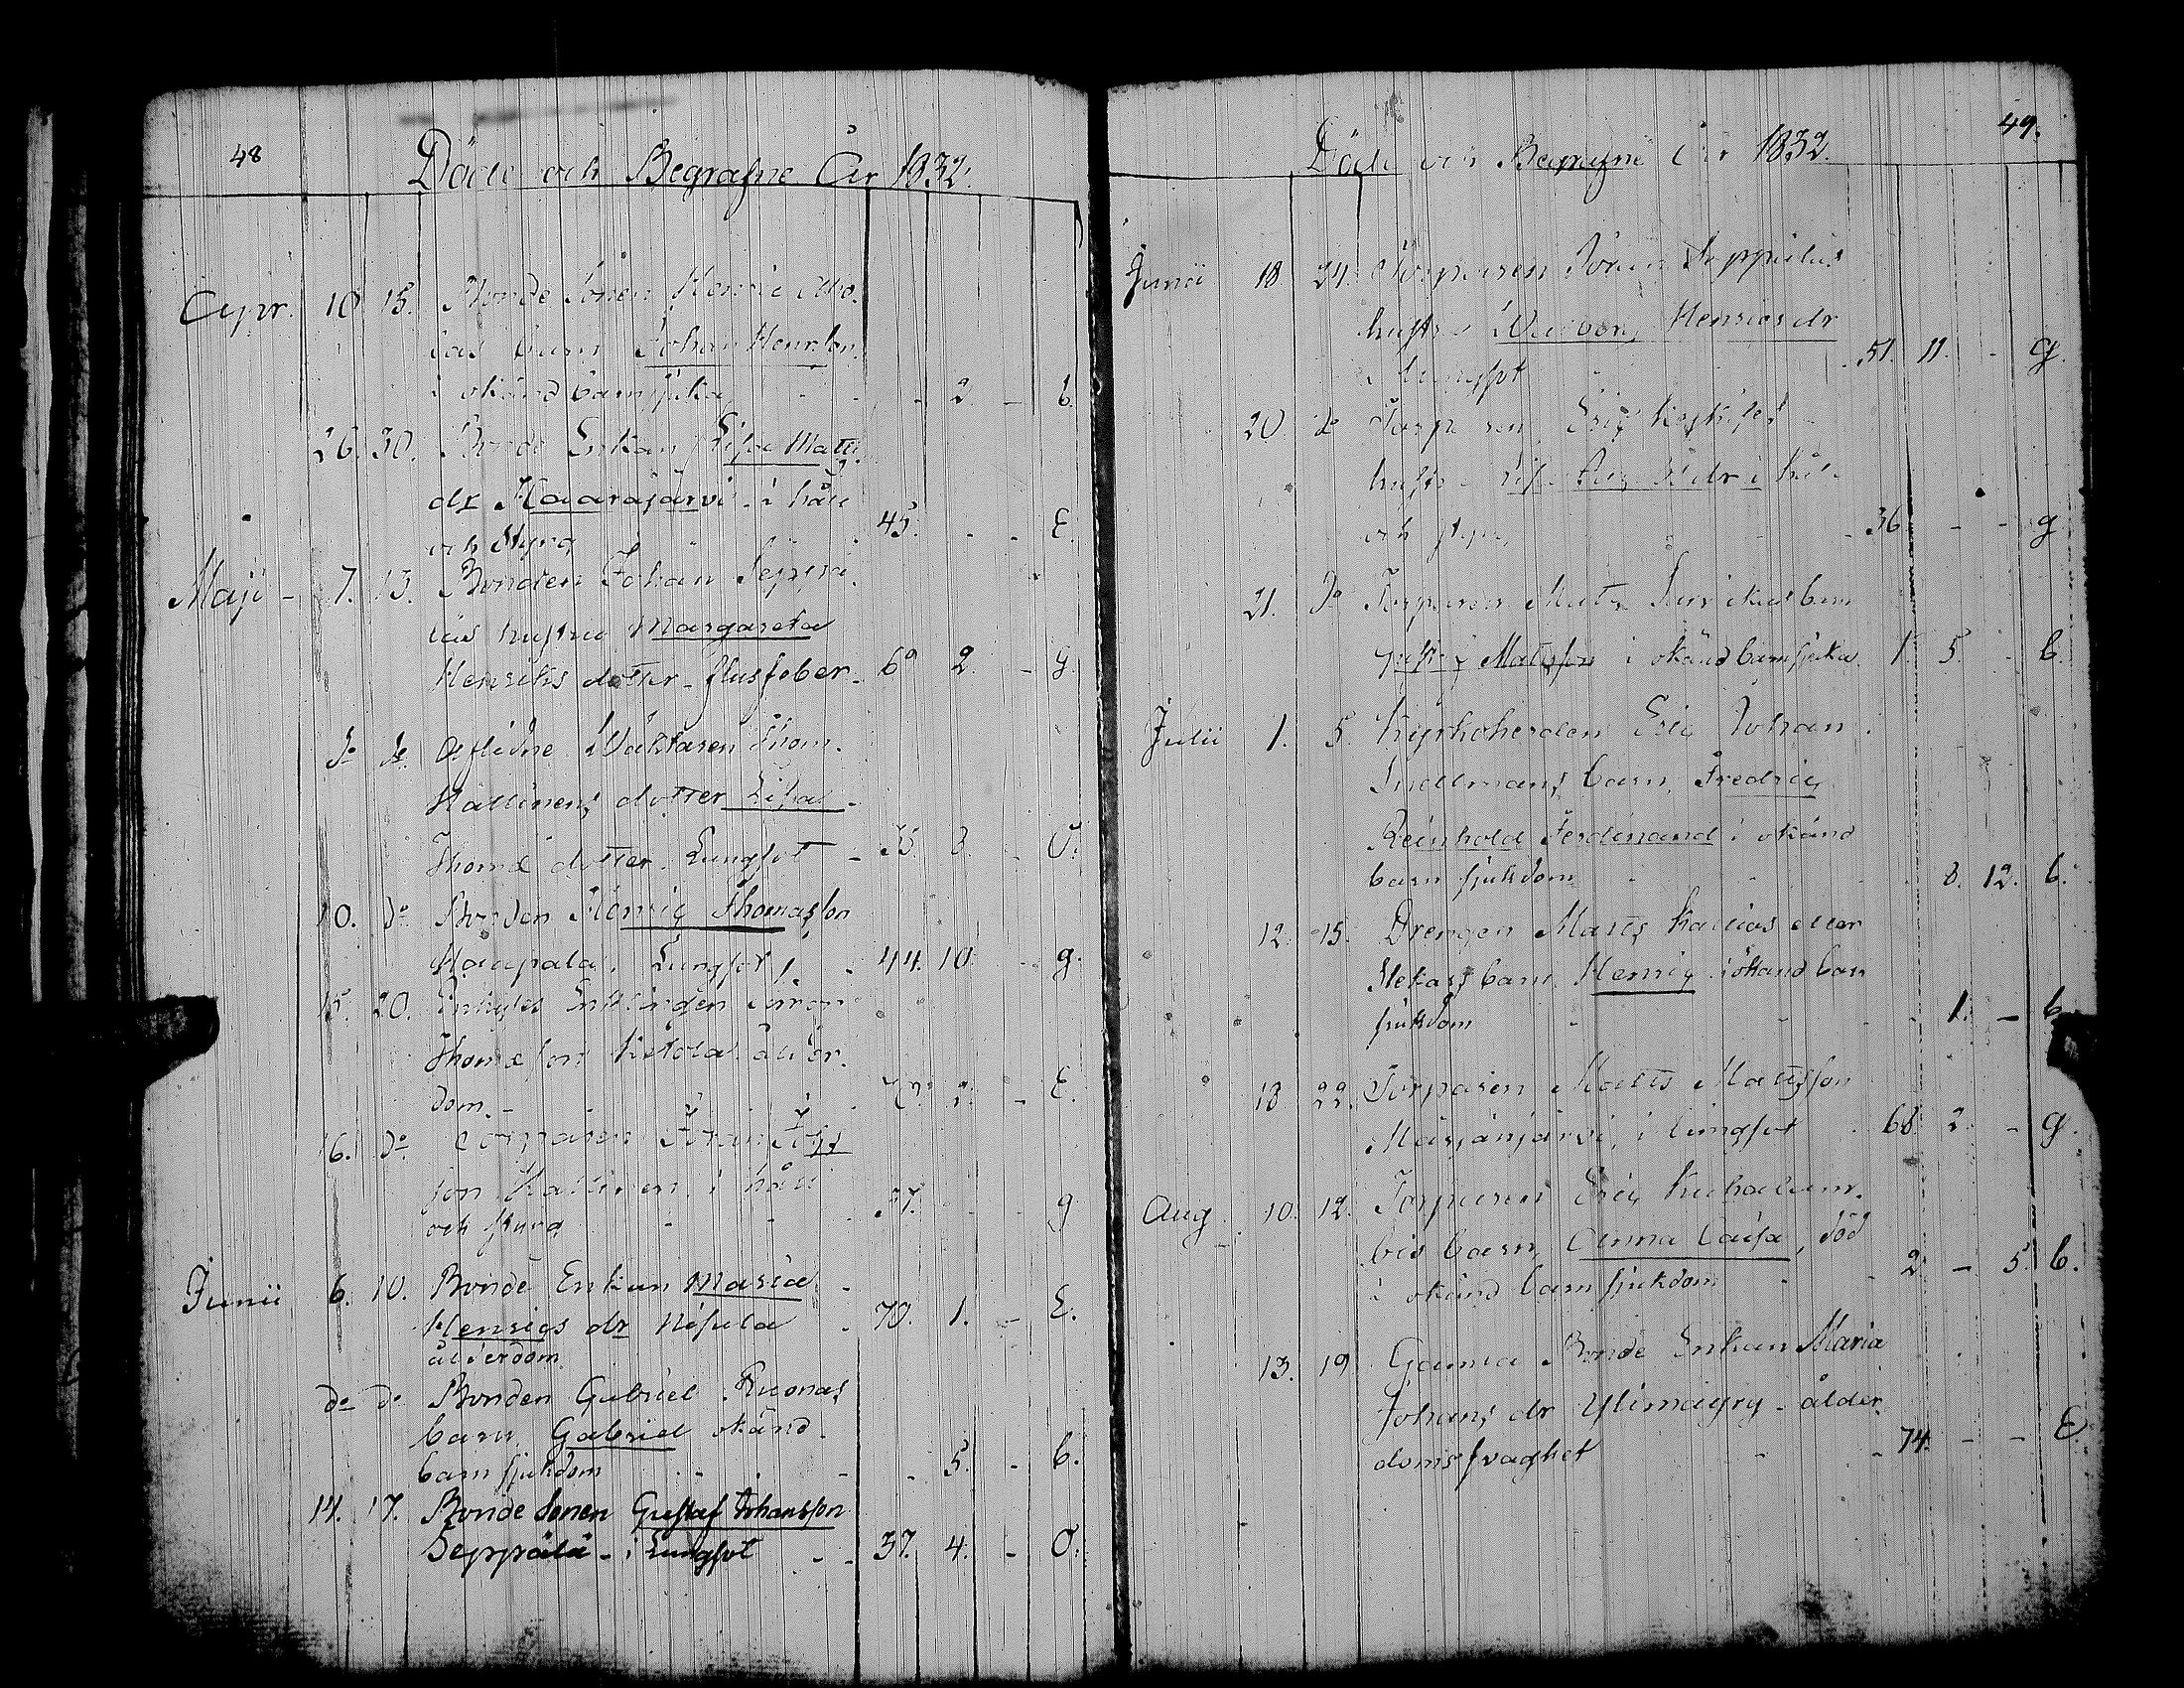 48
Döde och Begrafne År 1832.
Apr. 10 15. Bonde Sonen Henric
barn Johan Henr.son
i okänd barnsjuka - 2. - b.
26. 30. Bonde Enkan Lisa Matts
dr Haarajärvi - i håll
och Styng 45. - - E.
Maji - 7. 13. Bonden Johan Seppä
läs hustru Margareta
Henriks dotter - flussfeber - 69 2. - g.
do do Aflidne Waktaren Thom.
Kallinens dotter Lisa
Thomæ dotter. Lungsot - 35 8. - O.
10. do Bonden Henric Thomasson
Haapala. Lungsot - 44. 10 - g.
15. 20. Enklingen Simon
Thomæson Ketola ålder
dom. - 2. - E.
16. do Torparen Johan Johs
son Kallinen i håll
och styng - 37. - g
Junii 6. 10. Bonde Enkan Maria
Henrics dr Nisula - 70. 1. - E.
ålderdom
do do Bonden Gabriel Ruonas
barn Gabriel okänd
barnsjukdom - - 5. - b.
14. 17. Bonde Sonen Gustaf Johansson
Seppälä - i Lungsot - - 37. 4. - O.
49.
Döde och Begrafne År 1832.
Junii 18 24. Torparen Johan Seppäläs
hustru Walborg Henrics dr
i lungsot - 51. 11. - g.
20. do Torparen Eric
hustru Lisa dr i håll
och styng - 36 - - g
21. do Torparen Matts barn
Gustaf Matsson i okänd barnsjuka 1. 5. - b.
Julii 1. 5. Kyrkoherden Eric Johan
Snellmans barn, Fredric
Reinhold Ferdinand i okänd
barn sjukdom - - 8. 12. b.
12. 15. Drengen Matts Kallios eller
barn Henric i okänd barn
sjukdom - - - 1. - b
18 22. Torparen Matts Mattsson
Märjänjärvi, i lungsot - 68 2. - g.
Aug. 10. 12. Torparen Eric
bis barn Anna Caisa, död
i okänd barnsjukdom - 2 - 5. b.
13. 19 Gamla Bonde Enkan Maria
Johans dr Ylimäyry - ålder
domssvaghet - - 74. - - E.